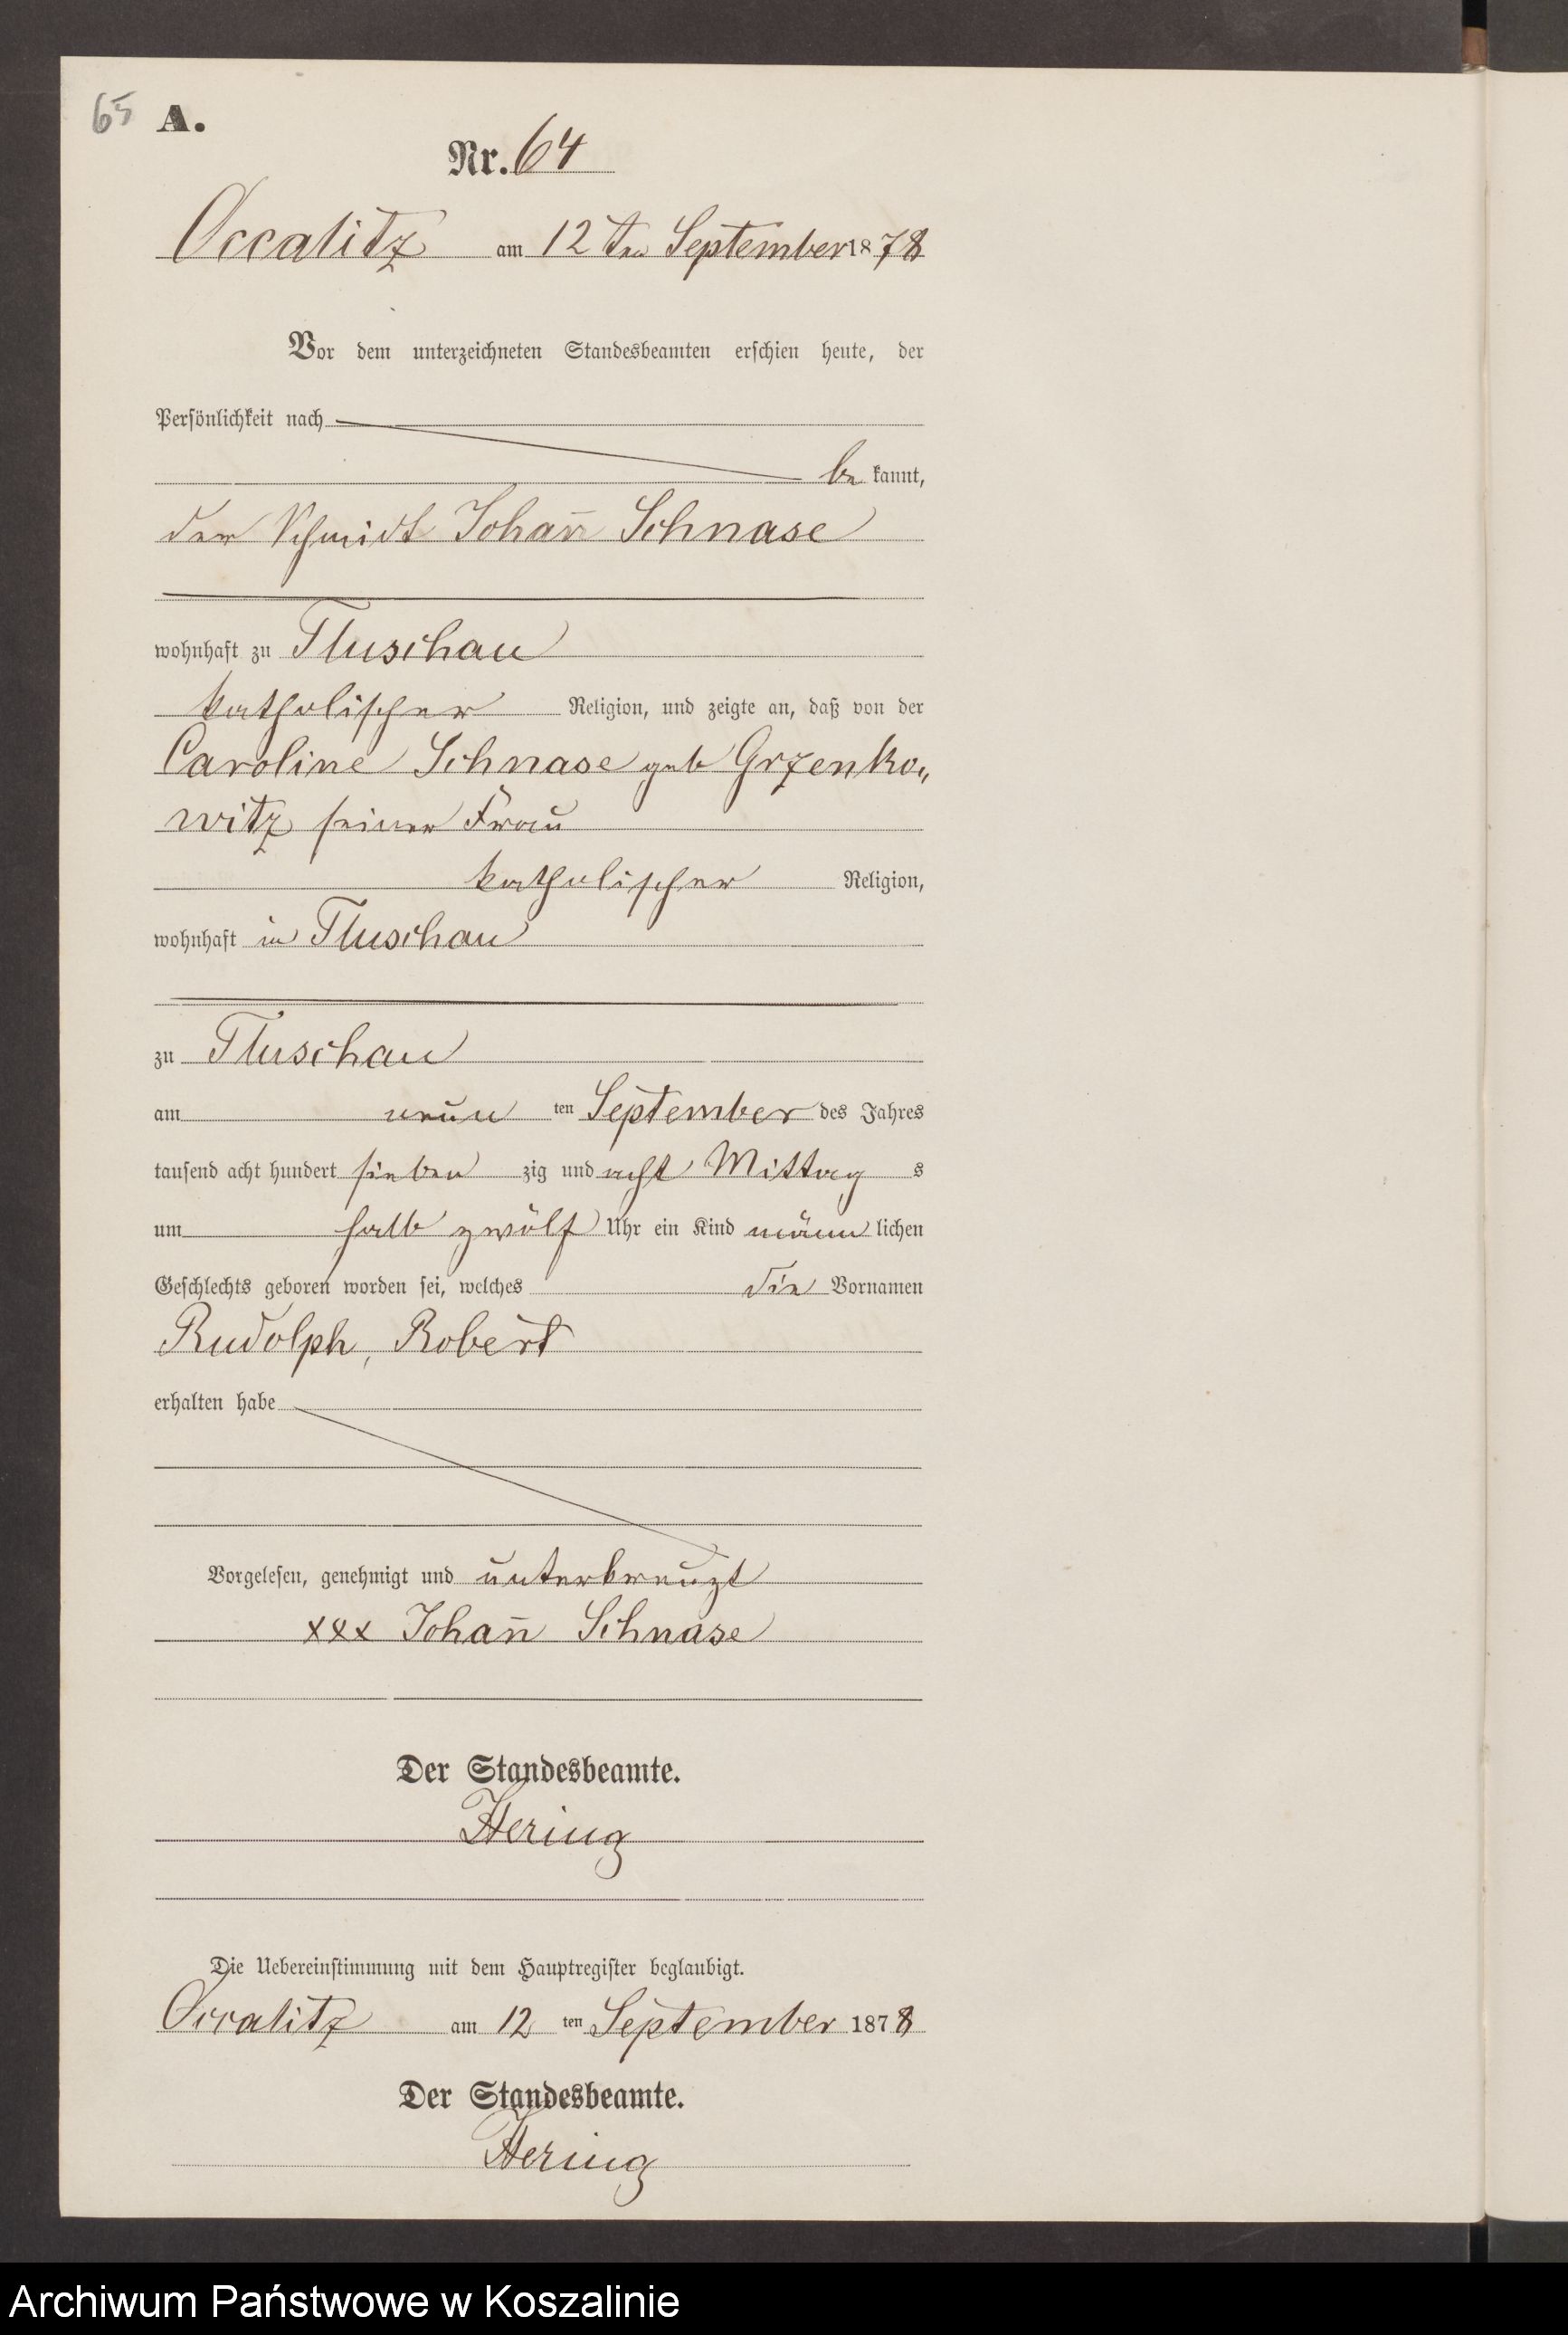 65 A.
Nr. 64
Occalitz am 12ten September 1878
Vor dem unterzeichneten Standesbeamten erschien heute, der
Persönlichkeit nach
be kannt,
der Schmidt Johan̄ Schnase
wohnhaft zu Tluschau
katholischer Religion, und zeigte an, daß von der
Caroline Schnase geb Grzenko„
witz seiner Frau
katholischer Religion,
wohnhaft in Tluschau
zu Tluschau
am neun ten September des Jahres
tausend acht hundert sieben zig und acht Mittag s
um halb zwölf Uhr ein Kind männ lichen
Geschlechts geboren worden sei, welches die Vornamen
Rudolph, Robert
erhalten habe
Vorgelesen, genehmigt und unterkreuzt
xxx Johan̄ Schnase
Der Standesbeamte.
Hering
Die Uebereinstimmung mit dem Hauptregister beglaubigt.
Occalitz am 12 ten September 1878
Der Standesbeamte.
Hering
Archiwum Państwowe w Koszalinie